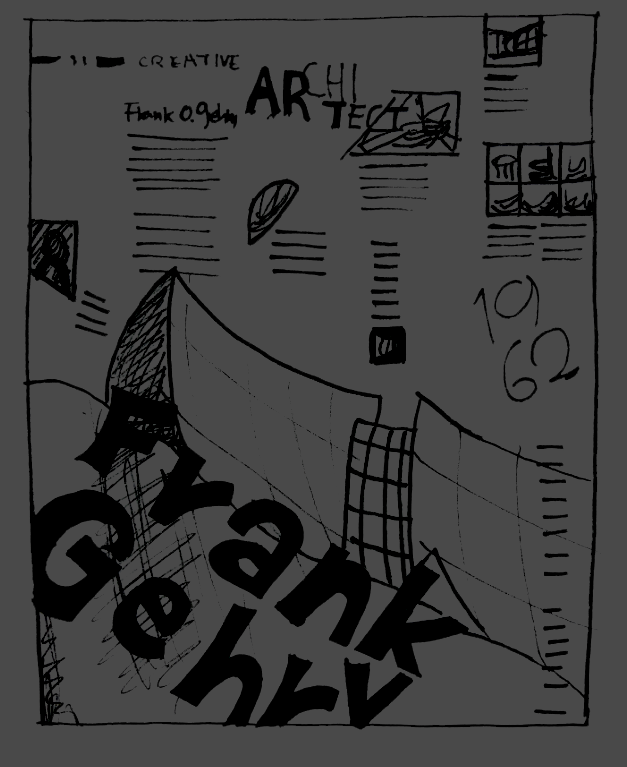 CREATIVE
ARCHI
TECT
Frank O. Gehry
19
62
Frank
Gehry